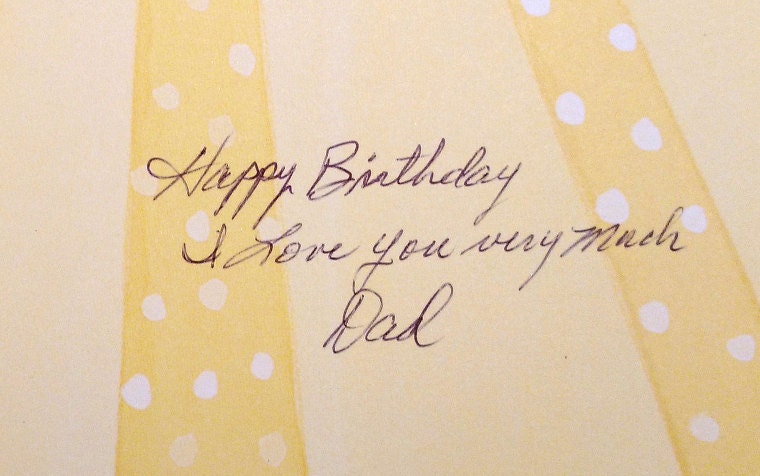 Happy Birthday
I Love you very much
Dad